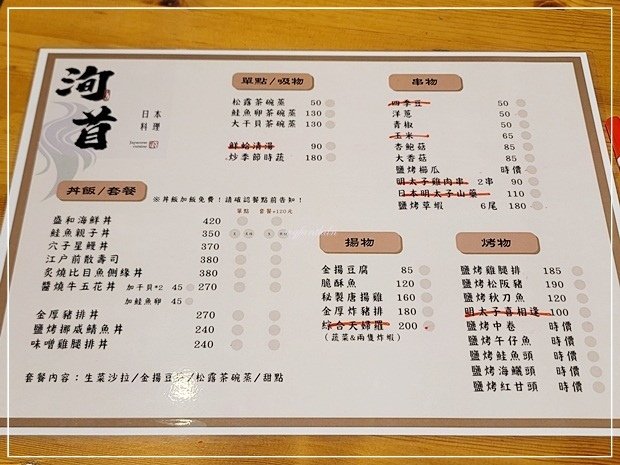 洵昔
日本
料理
Japanese
cuisine
單點/吸物
松露茶碗蒸 50
鮭魚卵茶碗蒸 130
大干貝茶碗蒸 130
鮮蛤清湯 90
炒季節時蔬 180
串物
四季豆 50
洋蔥 50
青椒 50
玉米 65
杏鮑菇 80
大香菇 80
鹽烤櫛瓜 時價
明太子雞肉串 2串 90
日本明太子山藥 110
鹽烤草蝦 6尾 180
丼飯/套餐
※丼飯加飯免費!請確認餐點前告知!
單點 套餐+120元
盛和海鮮丼 420
鮭魚親子丼 350
穴子星鰻丼 370
江戶前散壽司 380
炙燒比目魚側緣丼 380
醬燒牛五花丼 加干貝*2 45 270
加鮭魚卵 45
金厚豬排丼 240
鹽烤挪威鯖魚丼 240
味噌雞腿排丼 240
套餐內容:生菜沙拉/金揚豆腐/松露茶碗蒸/甜點
揚物
金揚豆腐 85
脆酥魚 120
秘製唐揚雞 160
金厚炸豬排 180
綜合天婦羅 200
(蔬菜&兩隻炸蝦)
烤物
鹽烤雞腿排 185
鹽烤松阪豬 190
鹽烤秋刀魚 120
明太子喜相逢 100
鹽烤中卷 時價
鹽烤午仔魚 時價
鹽烤鮭魚頭 時價
鹽烤海鱺頭 時價
鹽烤紅甘頭 時價